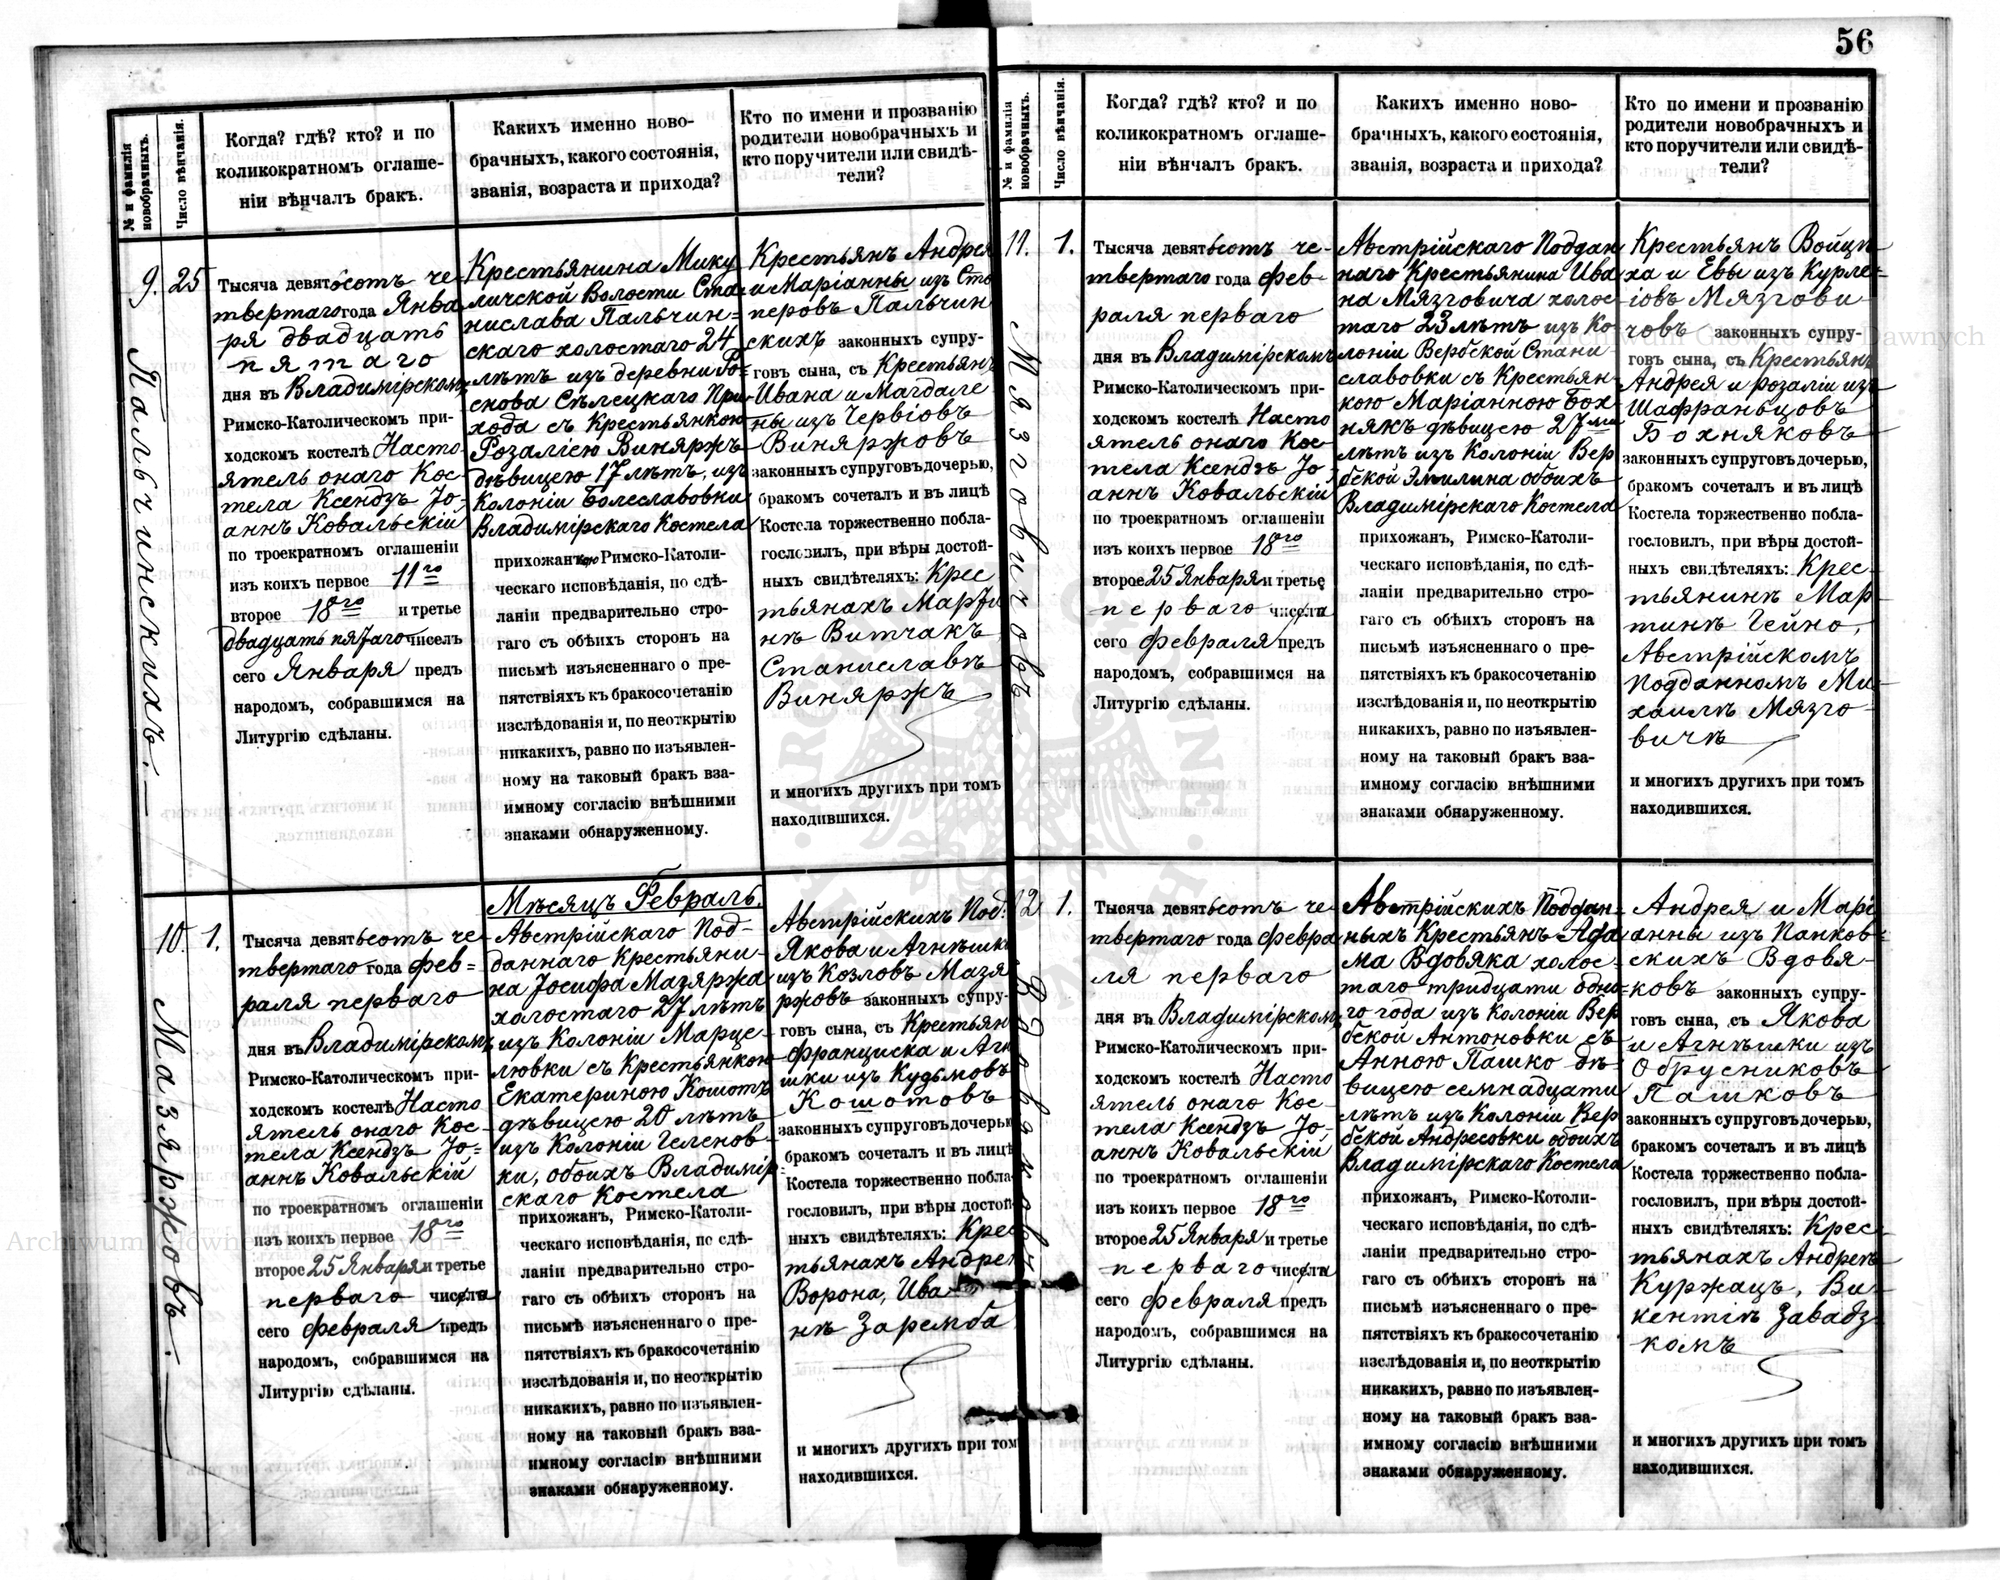 56
№ и фамилія новобрачныхъ.
Число вѣнчанія.
Когда? гдѣ? кто? и по
коликократномъ оглаше-
ніи вѣнчалъ бракъ.
Какихъ именно ново-
брачныхъ, какого состоянія,
званія, возраста и прихода?
Кто по имени и прозванію
родители новобрачныхъ и
кто поручители или свидѣ-
тели?
9.
25
Пальчинскихъ.
Тысяча девятьсотъ че-
твертаго года Янва
ря двадцать
пятаго
дня въ Владимірскомъ
Римско-Католическомъ при-
ходскомъ костелѣ Насто
ятель онаго Кос-
тела Ксендзъ Іо-
аннъ Ковальскій
по троекратномъ оглашеніи
изъ коихъ первое 11го
второе 18го и третье
двадцать пятаго чиселъ
сего Января предъ
народомъ, собравшимся на
Литургію сдѣланы.
Крестьянина Мику
личской Волости Ста-
нислава Пальчин-
скаго холостаго 24
лѣтъ изъ деревни Ро-
снова Сѣлецкаго При
хода съ Крестьянкою
Розаліею Виняржъ
дѣвицею 17 лѣтъ, изъ
Колоніи Болеславовки
Владимірскаго Костела
прихожанкою Римско-Католи-
ческаго исповѣданія, по сдѣ-
ланіи предварительно стро-
гаго съ обѣихъ сторонъ на
письмѣ изъясненнаго о пре-
пятствіяхъ къ бракосочетанію
изслѣдованія и, по неоткрытію
никакихъ, равно по изъявлен-
ному на таковый бракъ вза-
имному согласію внѣшними
знаками обнаруженному.
Крестьянъ Андрея
и Маріанны изъ Сто
перовъ Пальчин
скихъ законныхъ супру-
говъ сына, съ Крестьян
Ивана и Магдале
ны изъ Червіовъ
Виняржовъ
законныхъ супруговъ дочерью,
бракомъ сочеталъ и въ лицѣ
Костела торжественно побла-
гословилъ, при вѣры достой-
ныхъ свидѣтеляхъ: Крес
тьянахъ Марти
нѣ Витчакъ,
Станиславѣ
Виняржъ
и многихъ другихъ при томъ
находившихся.
10.
1.
Мазяржовъ.
Тысяча девятьсотъ че-
твертаго года фев-
раля перваго
дня въ Владимірскомъ
Римско-Католическомъ при-
ходскомъ костелѣ Насто
ятель онаго Кос-
тела Ксендзъ Іо-
аннъ Ковальскій
по троекратномъ оглашеніи
изъ коихъ первое 18го
второе 25 Января и третье
перваго числа
сего февраля предъ
народомъ, собравшимся на
Литургію сдѣланы.
Мѣсяцъ Февраль.
Австрійскаго Под-
даннаго Крестьяни-
на Іосифа Мазяржа
холостаго 27 лѣтъ
изъ Колоніи Марце-
ловки съ Крестьянкою
Екатериною Кошотъ
дѣвицею 20 лѣтъ
изъ Колоніи Геленов-
ки, обоихъ Владимір
скаго Костела
прихожанъ, Римско-Католи-
ческаго исповѣданія, по сдѣ-
ланіи предварительно стро-
гаго съ обѣихъ сторонъ на
письмѣ изъясненнаго о пре-
пятствіяхъ къ бракосочетанію
изслѣдованія и, по неоткрытію
никакихъ, равно по изъявлен-
ному на таковый бракъ вза-
имному согласію внѣшними
знаками обнаруженному.
Австрійскихъ Под:
Якова и Агнѣшки
изъ Козловъ Мазя
ржовъ законныхъ супру-
говъ сына, съ Крестьян
Франциска и Агнѣ
шки изъ Кудьмовъ
Кошотовъ
законныхъ супруговъ дочерью
бракомъ сочеталъ и въ лицѣ
Костела торжественно побла-
гословилъ, при вѣры достой-
ныхъ свидѣтеляхъ: Крес
тьянахъ Андреѣ
Ворона, Ива-
нѣ Заремба
и многихъ другихъ при томъ
находившихся.
№ и фамилія новобрачныхъ.
Число вѣнчанія.
Когда? гдѣ? кто? и по
коликократномъ оглаше-
ніи вѣнчалъ бракъ.
Какихъ именно ново-
брачныхъ, какого состоянія,
званія, возраста и прихода?
Кто по имени и прозванію
родители новобрачныхъ и
кто поручители или свидѣ-
тели?
11.
1.
Мязговичовъ
Тысяча девятьсотъ че-
твертаго года фев-
раля перваго
дня въ Владимірскомъ
Римско-Католическомъ при-
ходскомъ костелѣ Насто
ятель онаго Кос-
тела Ксендзъ Іо-
аннъ Ковальскій
по троекратномъ оглашеніи
изъ коихъ первое 18го
второе 25 Января и третье
перваго числа
сего февраля предъ
народомъ, собравшимся на
Литургію сдѣланы.
Австрійскаго Поддан
наго Крестьянина Ива
на Мязговича холос-
таго 23 лѣтъ изъ Ко-
лоніи Вербской Стани-
славовки съ Крестьян-
кою Маріанною Бох-
някъ дѣвицею 27ми
лѣтъ изъ Колоніи Вер
бской Эмилина обоихъ
Владимірскаго Костела
прихожанъ, Римско-Католи-
ческаго исповѣданія, по сдѣ-
ланіи предварительно стро-
гаго съ обѣихъ сторонъ на
письмѣ изъясненнаго о пре-
пятствіяхъ къ бракосочетанію
изслѣдованія и, по неоткрытію
никакихъ, равно по изъявлен-
ному на таковый бракъ вза-
имному согласію внѣшними
знаками обнаруженному.
Крестьянъ Войцѣ-
ха и Евы изъ Курле-
іовъ Мязгови-
човъ законныхъ супру-
говъ сына, съ Крестьянъ
Андрея и Розаліи изъ
Шафраньцовъ
Бохняковъ
законныхъ супруговъ дочерью,
бракомъ сочеталъ и въ лицѣ
Костела торжественно побла-
гословилъ, при вѣры достой-
ныхъ свидѣтеляхъ: Крес-
тьянинѣ Мар-
тинѣ Гейно,
Австрійскомъ
Подданномъ Ми-
хаилѣ Мязго-
вичѣ
и многихъ другихъ при томъ
находившихся.
12
1.
Вдовяковы
Тысяча девятьсотъ че-
твертаго года февра
ля перваго
дня въ Владимірскомъ
Римско-Католическомъ при-
ходскомъ костелѣ Насто
ятель онаго Кос-
тела Ксендзъ Іо-
аннъ Ковальскій
по троекратномъ оглашеніи
изъ коихъ первое 18го
второе 25 Января и третье
перваго числа
сего февраля предъ
народомъ, собравшимся на
Литургію сдѣланы.
Австрійскихъ Поддан-
ныхъ Крестьянъ Ада
ма Вдовяка холос-
таго тридцати одно
го года изъ Колоніи Вер
бской Антоновки съ
Анною Пашко дѣ-
вицею семнадцати
лѣтъ изъ Колоніи Вер
бской Андресовки обоихъ
Владимірскаго Костела
прихожанъ, Римско-Котоли-
ческаго исповѣданія, по сдѣ-
ланіи предварительно стро-
гаго съ обѣихъ сторонъ на
письмѣ изъясненнаго о пре-
пятствіяхъ къ бракосочетанію
изслѣдованія и, по неоткрытію
никакихъ, равно по изъявлен-
ному на таковый бракъ вза-
имному согласію внѣшними
знаками обнаруженному.
Андрея и Марі
анны изъ Панков-
скихъ Вдовя-
ковъ законныхъ супру-
говъ сына, съ Якова
и Агнѣшки изъ
Обрусниковъ
Пашковъ
законныхъ супруговъ дочерью,
бракомъ сочеталъ и въ лицѣ
Костела торжественно побла-
гословилъ, при вѣры достой-
ныхъ свидѣтеляхъ: Крес-
тьянахъ Андреѣ
Куржацъ, Ви-
кентіѣ Завадз-
комъ
и многихъ другихъ при томъ
находившихся.
Archiwum Główne Akt Dawnych
ARCHIWUM GŁÓWNE AKT DAWNYCH